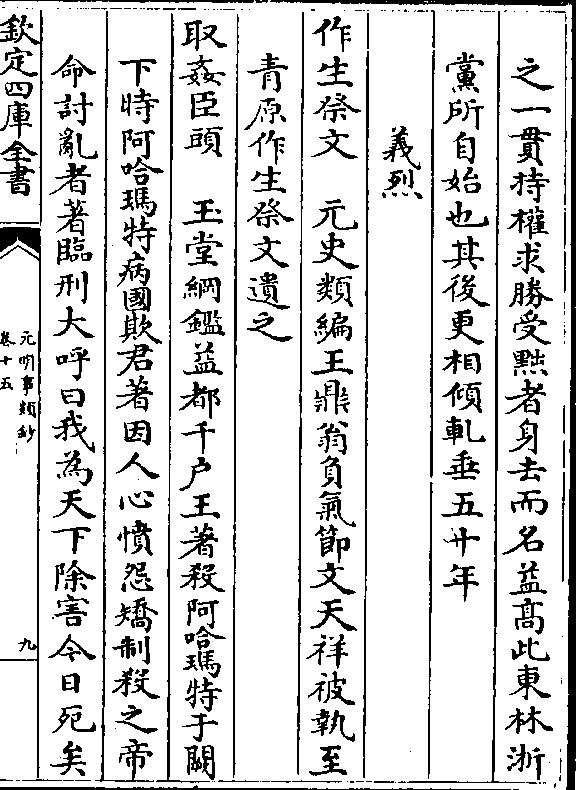 之一貫持權求勝受黜者身去而名益髙此東林浙
黨所自始也其後更相傾軋垂五十年
義烈
作生祭文　元史類編王鼎翁負氣節文天祥被執至
青原作生祭文遺之
取姦臣頭　玉堂綱鑑益都千户王著殺阿哈瑪特于闕
下時阿哈瑪特病國欺君著因人心憤怨矯制殺之帝
命討亂者著臨刑大呼曰我為天下除害今日死矣
欽定四庫全書
元明事類鈔
卷十五
九